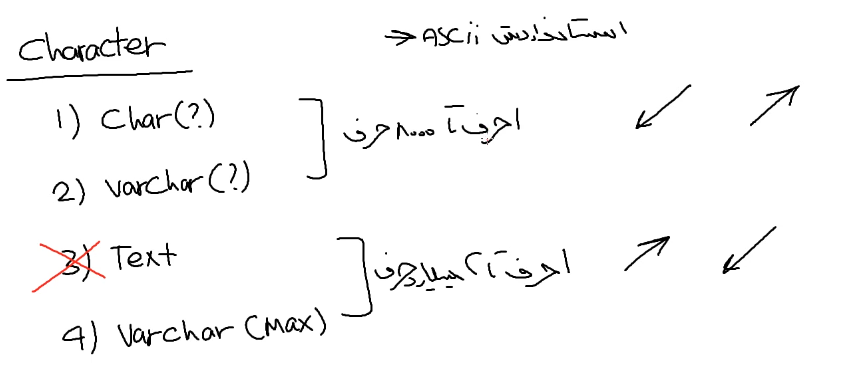 Character
→ ASCii استانداردش
1) Char(?)
2) varchar(?)
۱حرف تا ۸۰۰۰حرف
3) Text
4) Varchar (Max)
۱حرف تا ۲ میلیارد حرف